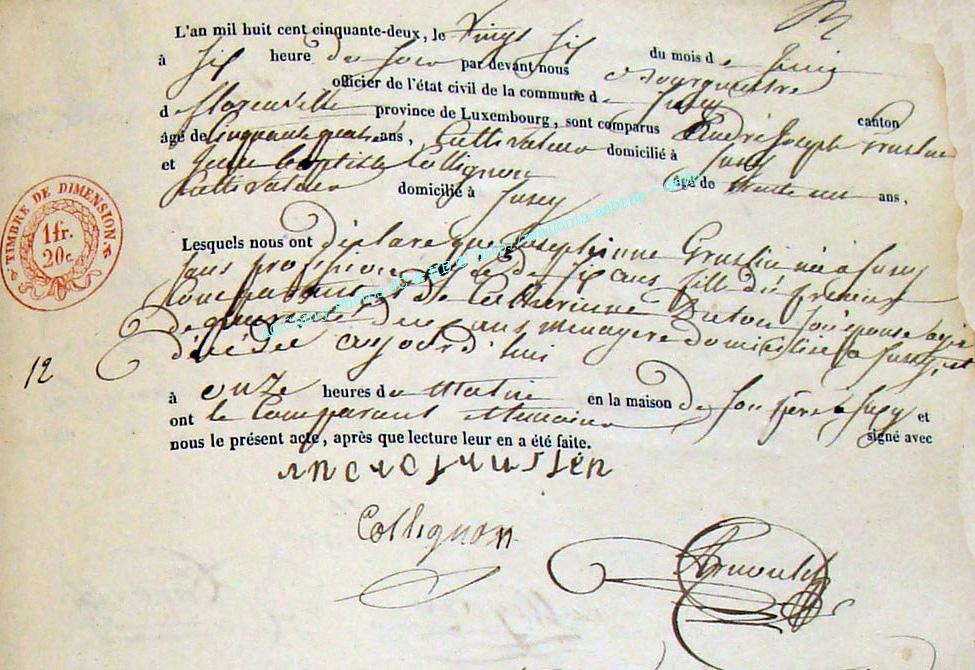 L'an mil huit cent cinquante-deux, le Vingt Six du mois de Juin
à Six heure du Soir par devant nous Bourguemestre
officier de l'état civil de la commune de Jusey
de florenville province de Luxembourg, sont comparus André Joseph canton
âgé de Cinquante quatre ans, Cultivateur domicilié à Jusey
et Jean baptiste Collignon âgé de trente ans,
Cultivateur domicilié à Jusey
Lesquels nous ont déclaré que Josephinne née à Jusey
Sans profession agée de Six ans fille du premier
Comparant et de Catherinne Son épouse agée
de quarante deux ans menagere domiciliée a Jusey, est
décédée aujourd'hui
12
à onze heures du Matin en la maison de Son père a Jusey et
ont le Comparant temoins signé avec
nous le présent acte, après que lecture leur en a été faite.
Collignon
TIMBRE DE DIMENSION.
1fr.
20c.